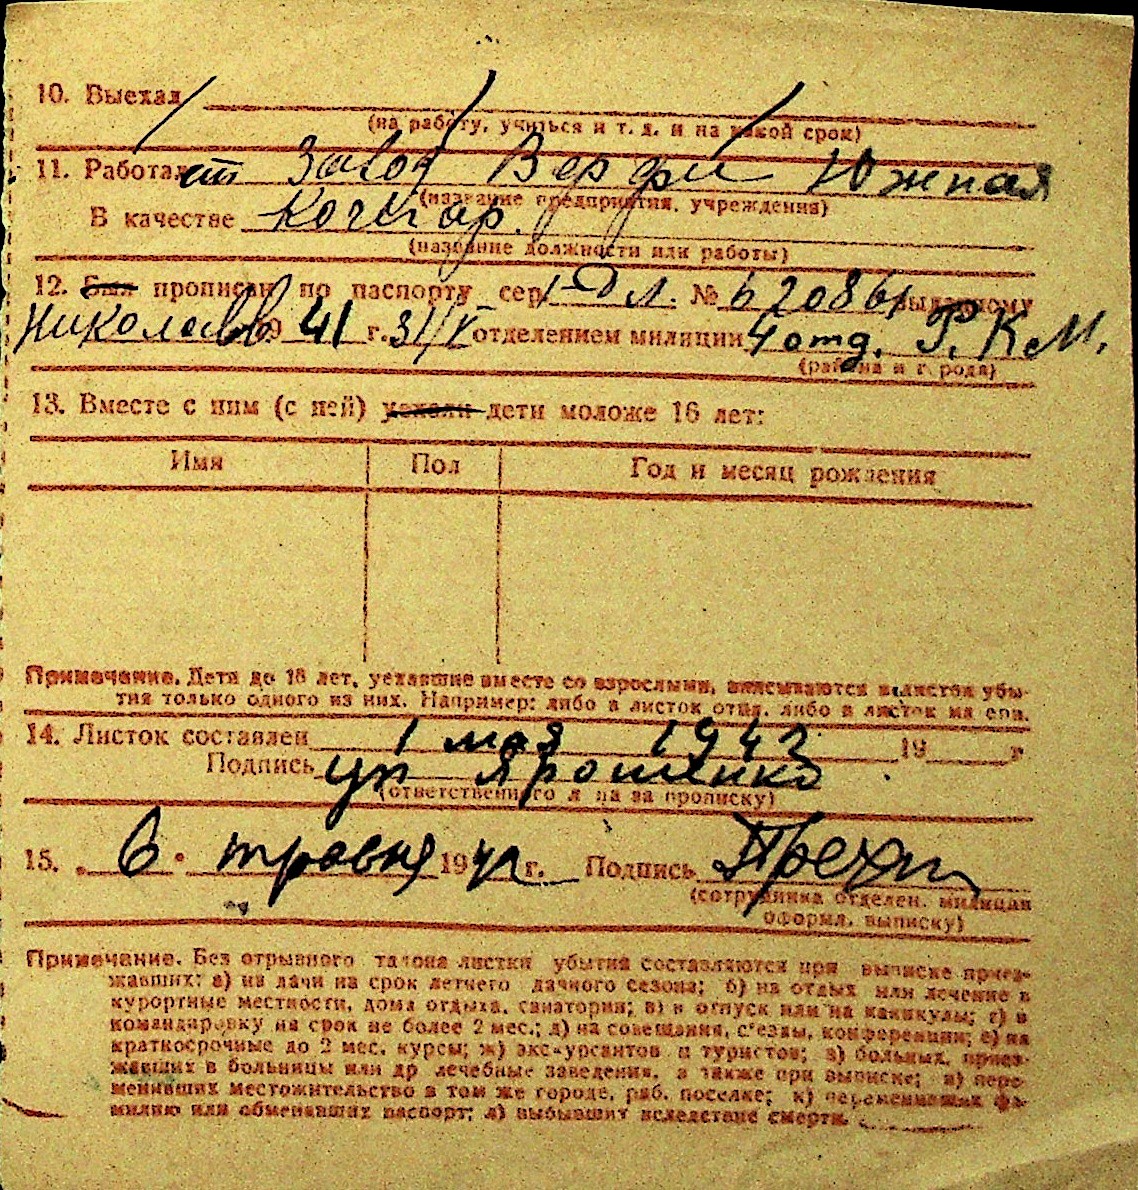 10. Выехал
(на работу, учиться и т. д. и на какой срок)
11. Работает Завод Верфи Южная
(название предприятия, учреждения)
В качестве Кочегар.
(название должности или работы)
12. Был прописан по паспорту сер. № 620861 выданному
Николаев 1941 г. 31/V отделением милиции 4 отд. Р.К.М.
(района и города)
13. Вместе с ним (с ней) уехали дети моложе 16 лет:
Имя Пол Год и месяц рождения
Примечание. Дети до 16 лет, уехавшие вместе со взрослыми, вписываются в листок убы-
тия только одного из них. Например: либо в листок отца, либо в листок матери.
14. Листок составлен 1 мая 1942 19 г
Подпись уп Ярошенко
(ответственного лица за прописку)
15. „6" травня 1942 г. Подпись
(сотрудника отделен. милиции
оформл. выписку)
Примечание. Без отрывного талона листки убытия составляются при выписке приез-
жавших: а) на дачи на срок летнего дачного сезона; б) на отдых или лечение в
курортные местности, дома отдыха, санатории; в) в отпуск или на каникулы; г) в
командировку на срок не более 2 мес.; д) на совещания, съезды, конференции; е) на
краткосрочные до 2 мес. курсы; ж) экскурсантов и туристов; з) больных, приез-
жавших в больницы или др лечебные заведения, а также при выписке; и) пере-
менивших местожительство в том же городе, раб. поселке; к) переменивших фа-
милию или обменявших паспорт; л) выбывших вследствие смерти.